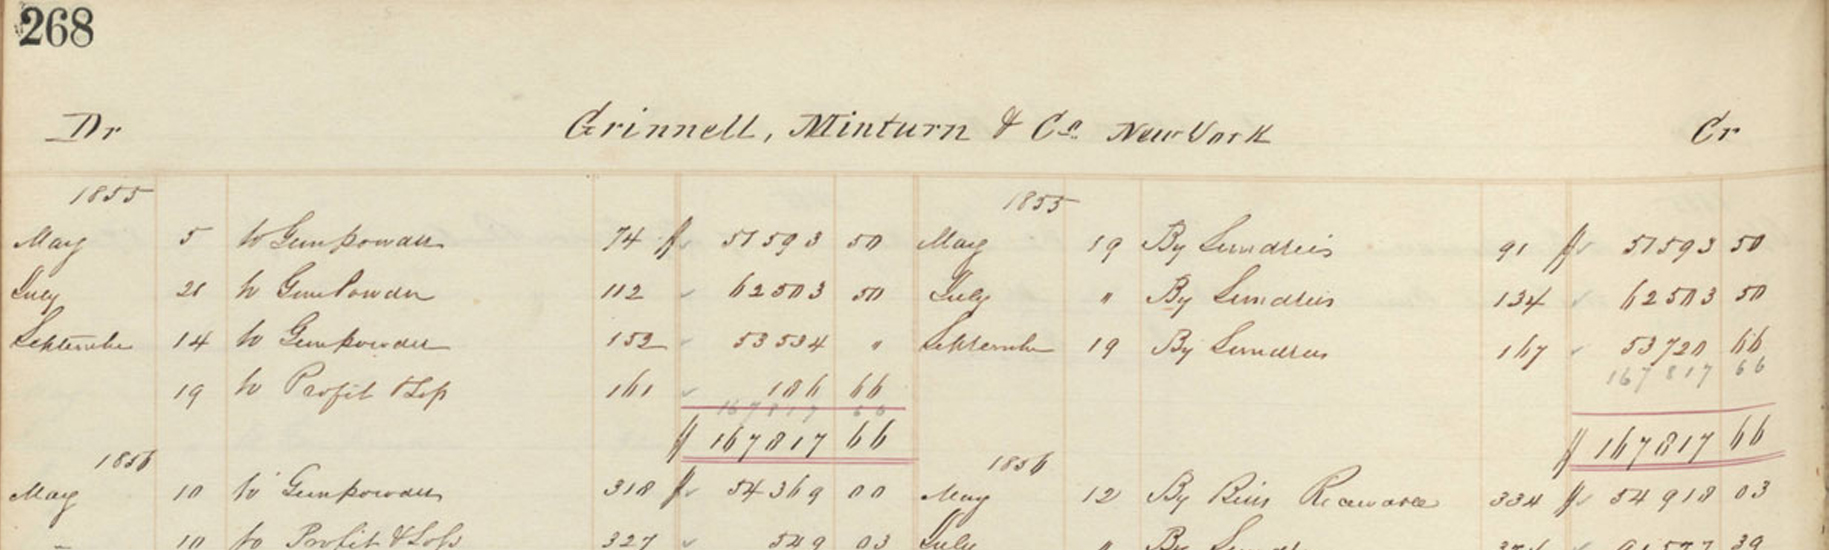 268
Dr Grinnell, Minturn & Co. New York Cr
1855 1855
May 5 to Gunpowder 74 $ 51593 50 May 19 By Sundries 91 $ 51593 50
July 21 to GunPowder 112 62503 50 July " By Sundries 134 62503 50
September 14 to Gunpowder 152 53534 " September 19 By Sundries 167 53720 66
167817 66
19 to Profit & Loss 161 186 66
167817 66
$ 167817 66 $ 167817 66
1856 1856
May 10 to Gunpowder 318 $ 54369 00 May 12 By Bills 334 $ 54918 03
" 10 to Profit & Loss 327 549 03 July " By 39